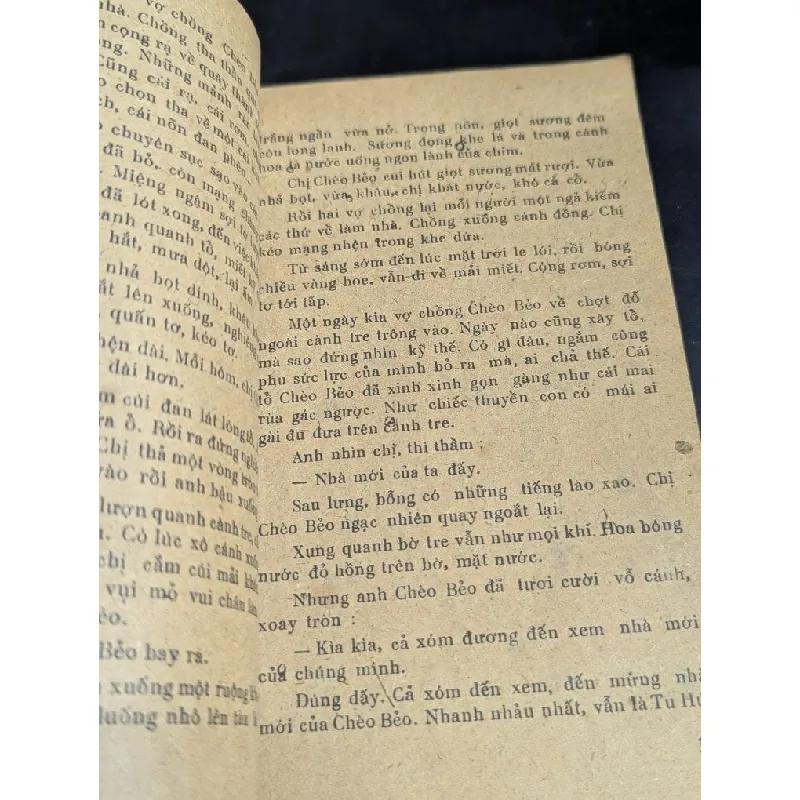 vợ chồng Chèo
nhà. Chồng tha thẩn
cọng rạ về quây thành
Những mảnh
Cũng cái rạ, cái rơm
chọn tha về một cái
cái nõn đan
chuyên sục sạo vào
đã bỏ, còn mạng
Miệng ngậm sợi tơ
đã lót xong, đến việc
quanh tổ, miết
hắt, mưa dột, lại
nhả bọt dính, khâu
lên xuống, nghiêng
quấn tơ, kéo tơ.
dài. Mỗi hôm, chị
dài hơn.
cúi đan lát lòng
ổ. Rồi ra đứng
Chị thả một vòng tròn
vào rồi anh bậu xuống
lượn quanh cành tre,
Có lúc xò cánh
chị cắm cúi mải
vụi mỏ vui chân
Bẻo bay ra.
xuống một ruộng
luống nhỏ lên
trắng ngần vừa nở. Trong nõn, giọt sương đêm
còn long lanh. Sương đọng khe lá và trong cánh
hoa là nước uống ngon lành của chim.
Chị Chèo Bẻo cúi hút giọt sương mát rượi. Vừa
nhả bọt, vừa khâu, chị khát nước, khô cả cổ.
Rồi hai vợ chồng lại mỗi người một ngả kiếm
các thứ về làm nhà. Chồng xuống cánh đồng. Chị
kéo mạng nhện trong khe dừa.
Từ sáng sớm đến lúc mặt trời le lói, rồi bóng
chiều vàng hoe, vẫn đi về mải miết. Cọng rơm, sợi
tơ tới tấp.
Một ngày kia vợ chồng Chèo Bẻo về chợt đỗ
ngoài cành tre trông vào. Ngày nào cũng xây tổ,
mà sao đứng nhìn kỹ thế. Có gì đâu, ngắm công
phu sức lực của mình bỏ ra mà, ai chả thế. Cái
tổ Chèo Bẻo đã xinh xinh gọn gàng như cái mai
rùa gác ngược. Như chiếc thuyền con có mái ai
gài đu đưa trên cành tre.
Anh nhìn chị, thì thầm :
— Nhà mới của ta đấy.
Sau lưng, bỗng có những tiếng lao xao. Chị
Chèo Bẻo ngạc nhiên quay ngoắt lại.
Xung quanh bờ tre vẫn như mọi khi. Hoa bóng
nước đỏ hồng trên bờ, mặt nước.
Nhưng anh Chèo Bẻo đã tươi cười vỗ cánh,
xoay tròn :
— Kìa kìa, cả xóm đương đến xem nhà mới
của chúng mình.
Đúng đấy. Cả xóm đến xem, đến mừng nhà
mới của Chèo Bẻo. Nhanh nhảu nhất, vẫn là Tu Hú